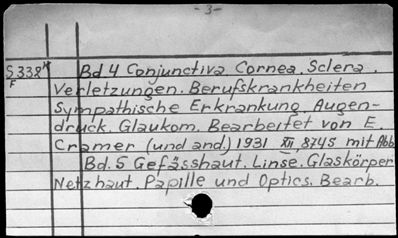 -3-
S338K Bd 4 Conjunctiva Cornea. Sclera.
F Verletzungen. Berufskrankheiten
Sympathische Erkrankung Augen-
druck. Glaukom. Bearbeitet von E.
Cramer (und and.) 1931 XII, 8745 mit Abb
Bd. 5 Gefässhaut. Linse. Glaskörper
Netzhaut. Papille und Optics. Bearb.